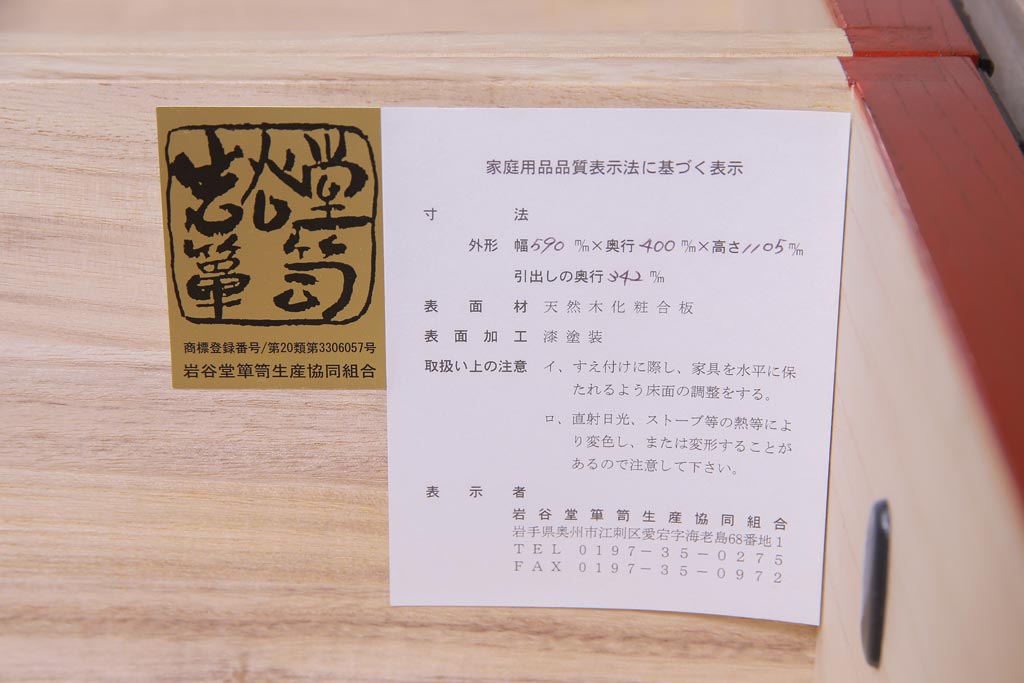 岩谷堂簞笥
商標登録番号/第20類第3306057号
岩谷堂簞笥生産協同組合
家庭用品品質表示法に基づく表示
寸法
外形 幅590㎜×奥行400㎜×高さ1105㎜
引出しの奥行342㎜
表面材 天然木化粧合板
表面加工 漆塗装
取扱い上の注意 イ、すえ付けに際し、家具を水平に保
たれるよう床面の調整をする。
ロ、直射日光、ストーブ等の熱等によ
り変色し、または変形することが
あるので注意して下さい。
表示者
岩谷堂簞笥生産協同組合
岩手県奥州市江刺区愛宕字海老島68番地1
TEL 0197-35-0275
FAX 0197-35-0972